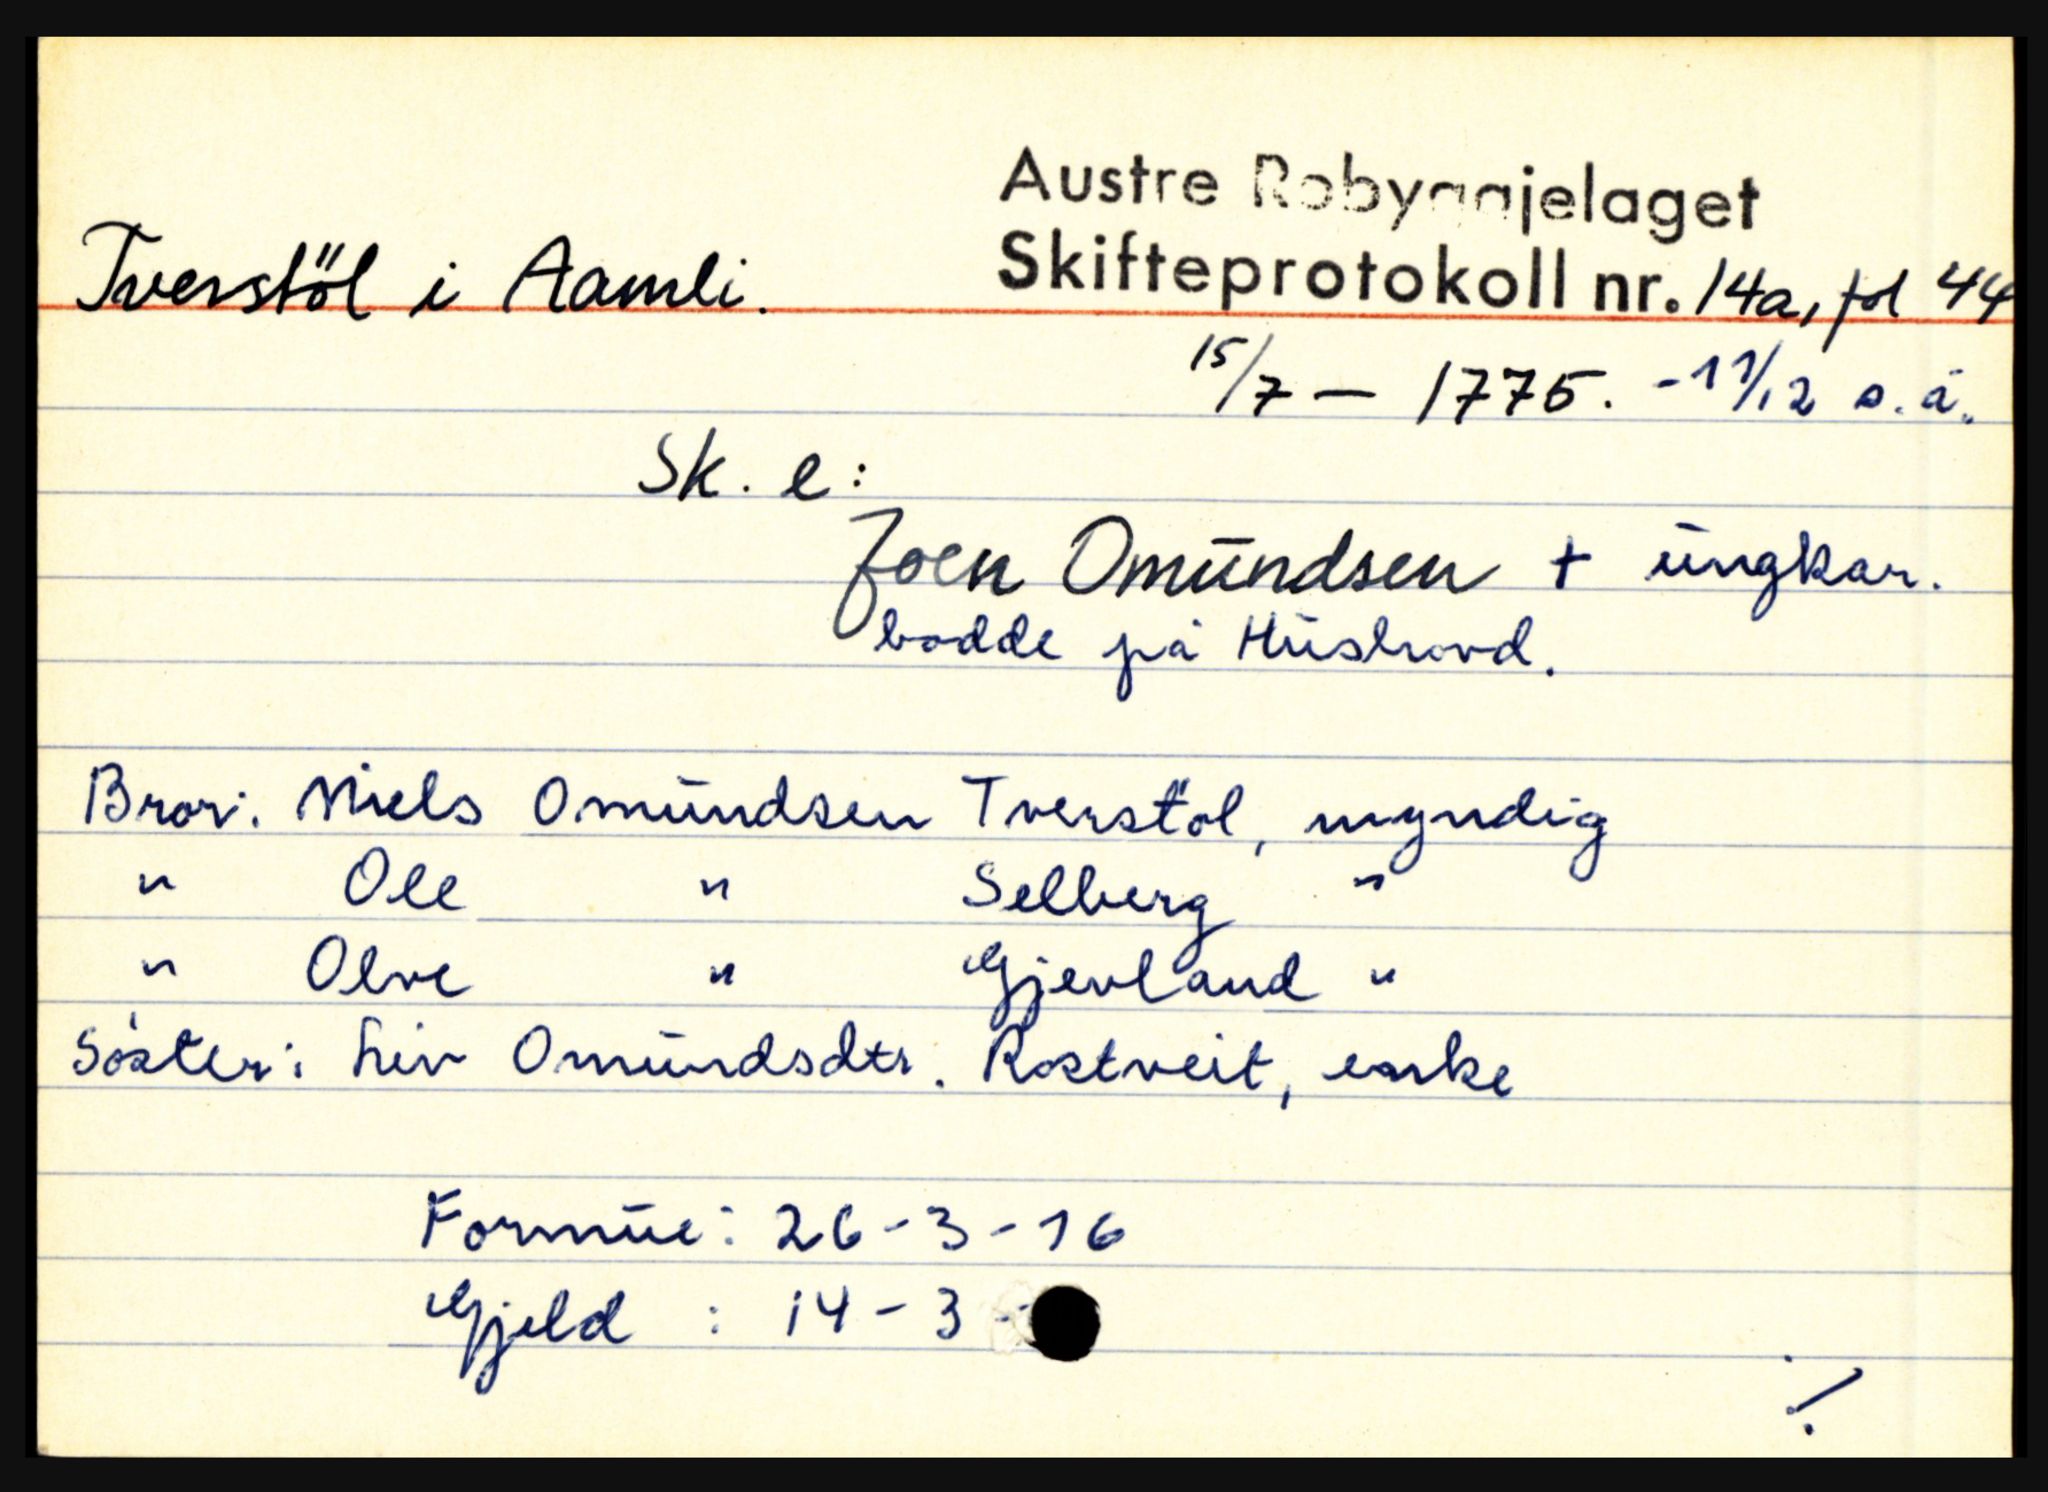 Austre Robyggjelaget
Tverstöl i Aamli. Skifteprotokoll nr. 14a, fol 44
15/7 — 1775. - 11/12 s. å.
Sk. e:
Joen Omundsen + ungkar.
bodde på Hushovd.
Bror: Niels Omundsen Tverstöl, myndig
" Ole " Selberg "
" Olve " Gjevland "
Söster: Liv Omundsdtr. Rostveit, enke
Formue: 26 - 3 - 16
Gjeld : 14 - 3 -